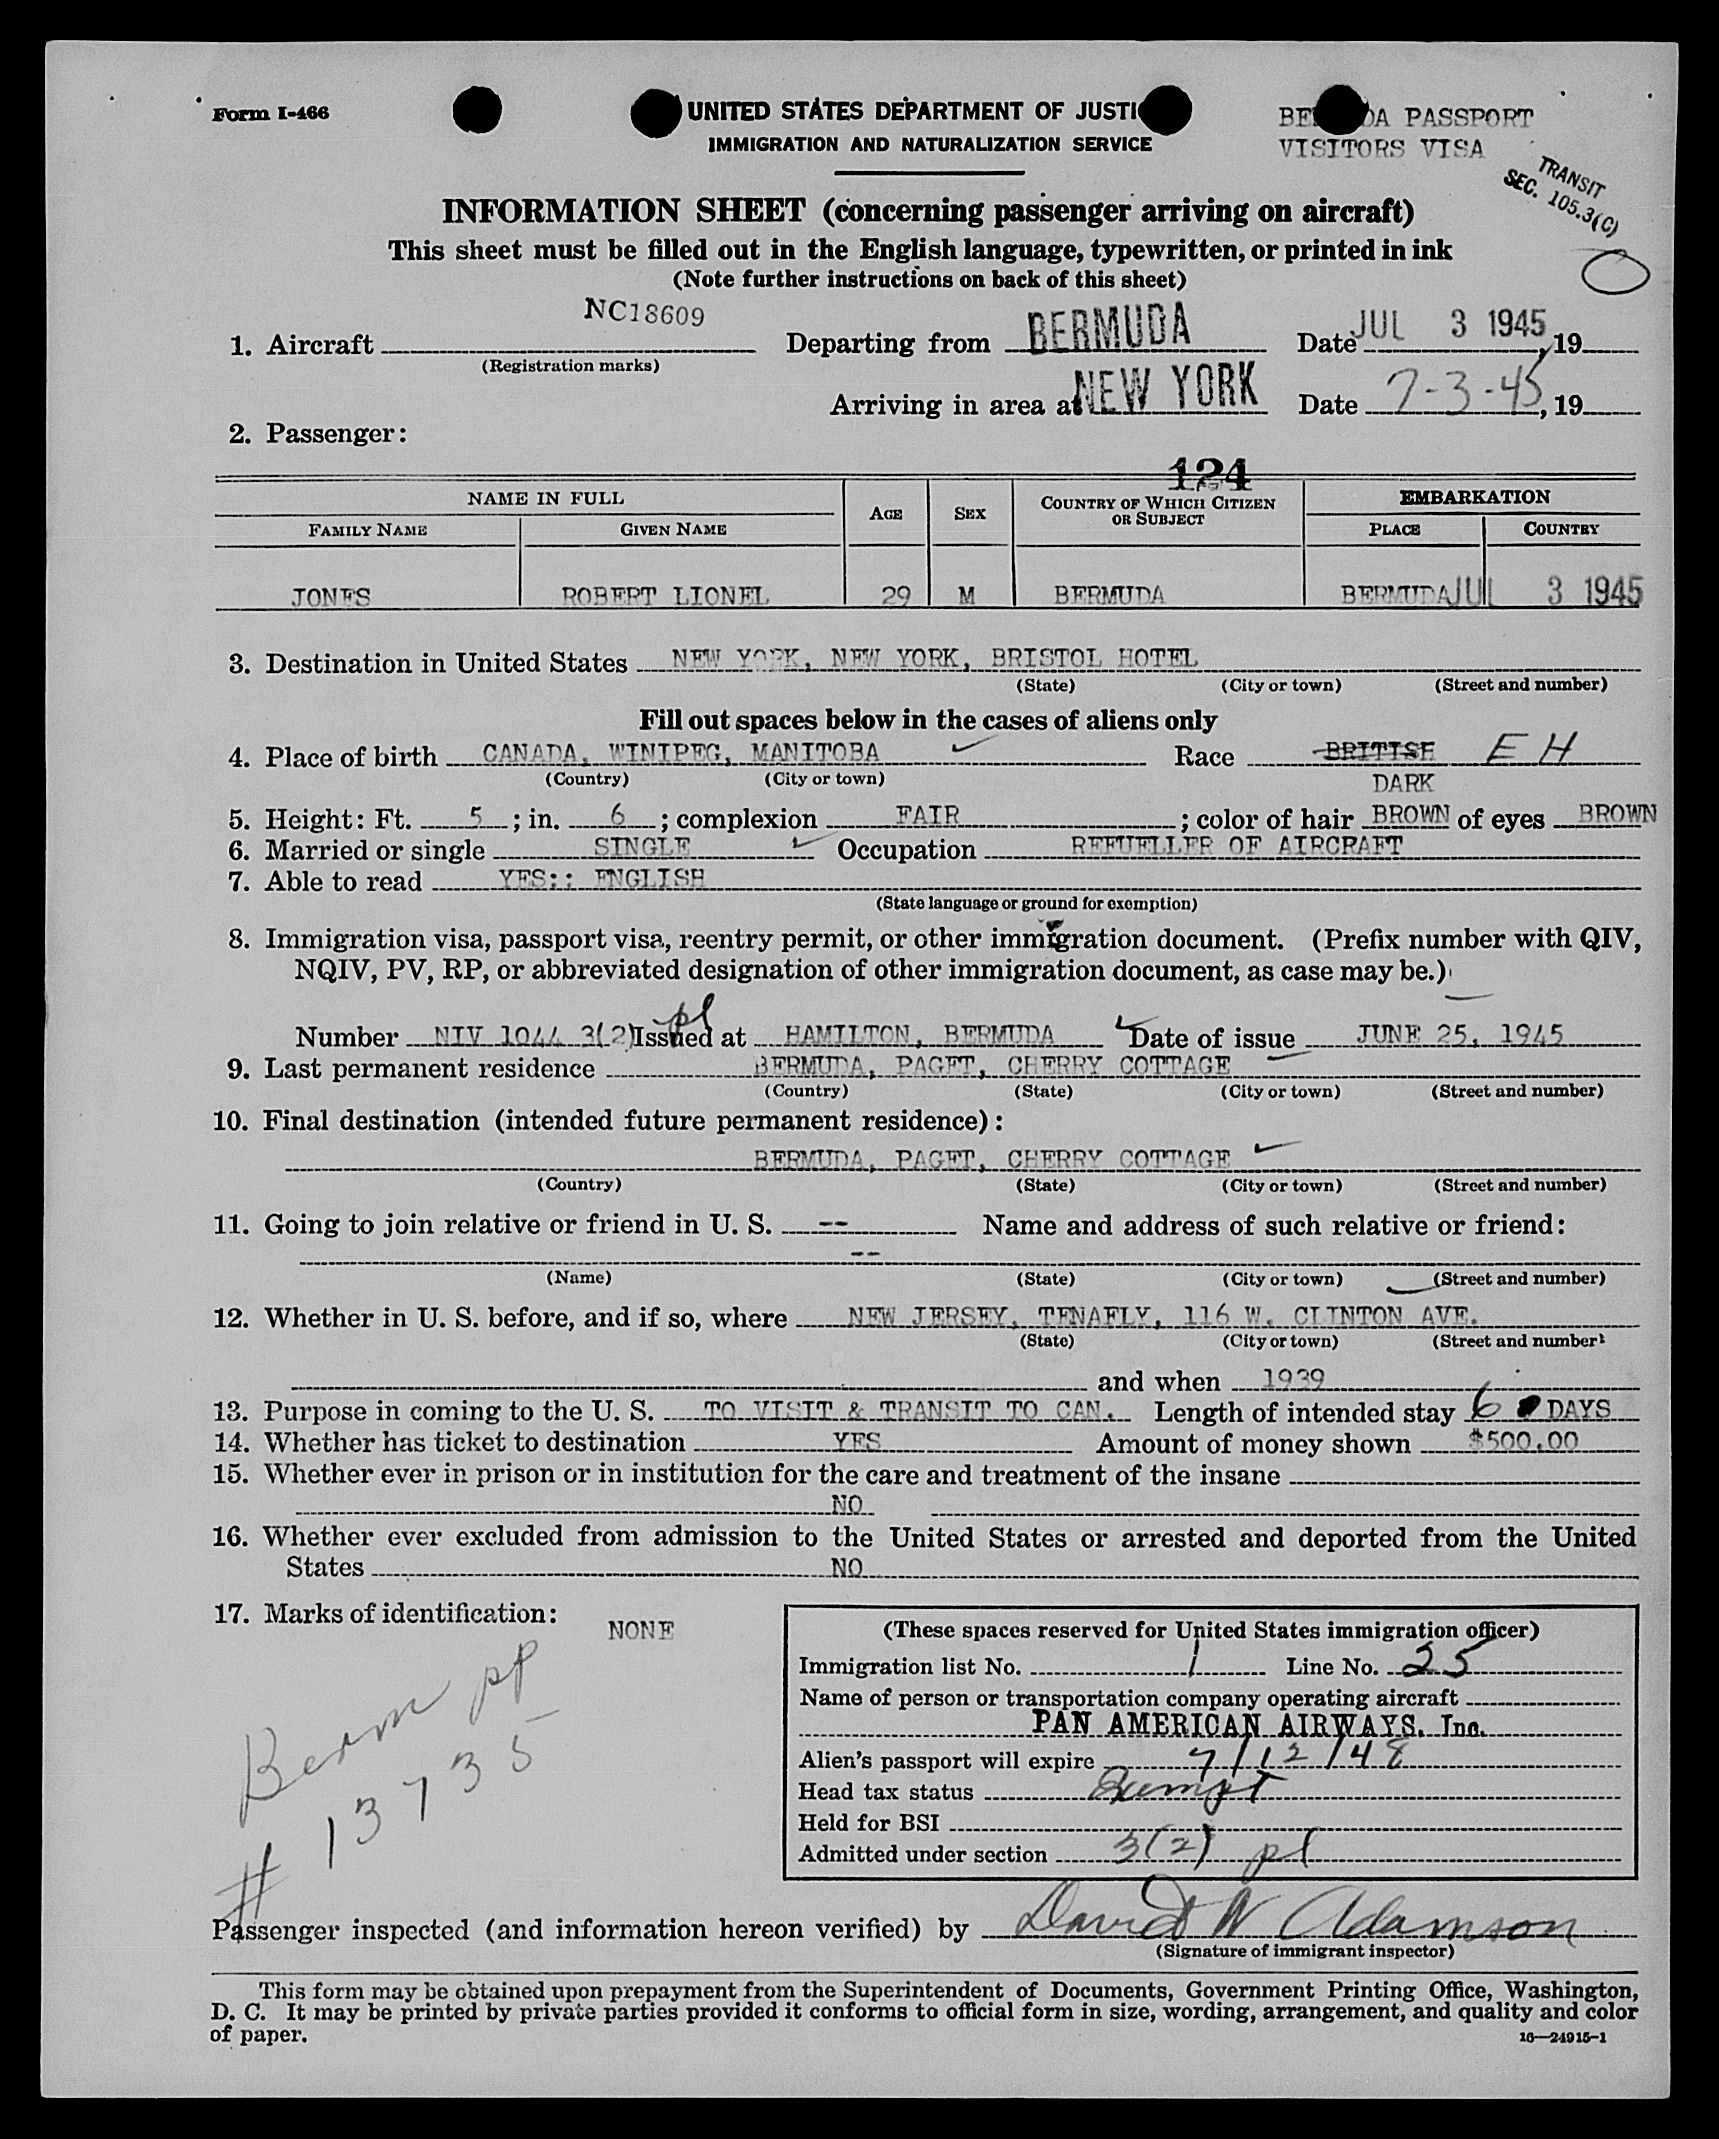 Form I-466
UNITED STATES DEPARTMENT OF JUSTI
IMMIGRATION AND NATURALIZATION SERVICE
BE DA PASSPORT
VISITORS VISA
TRANSIT
SEC. 105.3(C)
INFORMATION SHEET (concerning passenger arriving on aircraft)
This sheet must be filled out in the English language, typewritten, or printed in ink
(Note further instructions on back of this sheet)
1. Aircraft NC18609 Departing from BERMUDA Date JUL 3 1945, 19
(Registration marks)
Arriving in area at NEW YORK Date 7-3-45, 19
2. Passenger:
124
NAME IN FULL AGE SEX COUNTRY OF WHICH CITIZEN OR SUBJECT EMBARKATION
FAMILY NAME GIVEN NAME PLACE COUNTRY
JONES ROBERT LIONEL 29 M BERMUDA BERMUDA JUL 3 1945
3. Destination in United States NEW YORK, NEW YORK, BRISTOL HOTEL
(State) (City or town) (Street and number)
Fill out spaces below in the cases of aliens only
4. Place of birth CANADA, WINIPEG, MANITOBA Race BRITISH E H
(Country) (City or town) DARK
5. Height: Ft. 5; in. 6; complexion FAIR; color of hair BROWN of eyes BROWN
6. Married or single SINGLE Occupation REFUELLER OF AIRCRAFT
7. Able to read YES:: ENGLISH
(State language or ground for exemption)
8. Immigration visa, passport visa, reentry permit, or other immigration document. (Prefix number with QIV,
NQIV, PV, RP, or abbreviated designation of other immigration document, as case may be.)
pl
Number NIV 1044 3(2) Issued at HAMILTON, BERMUDA Date of issue JUNE 25, 1945
9. Last permanent residence BERMUDA, PAGET, CHERRY COTTAGE
(Country) (State) (City or town) (Street and number)
10. Final destination (intended future permanent residence):
BERMUDA, PAGET, CHERRY COTTAGE
(Country) (State) (City or town) (Street and number)
11. Going to join relative or friend in U. S. -- Name and address of such relative or friend:
--
(Name) (State) (City or town) (Street and number)
12. Whether in U. S. before, and if so, where NEW JERSEY, TENAFLY, 116 W. CLINTON AVE.
(State) (City or town) (Street and number)
and when 1939
13. Purpose in coming to the U. S. TO VISIT & TRANSIT TO CAN. Length of intended stay 6 DAYS
14. Whether has ticket to destination YES Amount of money shown $500.00
15. Whether ever in prison or in institution for the care and treatment of the insane
NO
16. Whether ever excluded from admission to the United States or arrested and deported from the United
States NO
17. Marks of identification: NONE
Berm pp
# 13735
(These spaces reserved for United States immigration officer)
Immigration list No. 1 Line No. 25
Name of person or transportation company operating aircraft
PAN AMERICAN AIRWAYS, Inc.
Alien's passport will expire 7/12/48
Head tax status Exempt
Held for BSI
Admitted under section 3(2) pl
Passenger inspected (and information hereon verified) by David W Adamson
(Signature of immigrant inspector)
This form may be obtained upon prepayment from the Superintendent of Documents, Government Printing Office, Washington,
D. C. It may be printed by private parties provided it conforms to official form in size, wording, arrangement, and quality and color
of paper.
16—24915-1